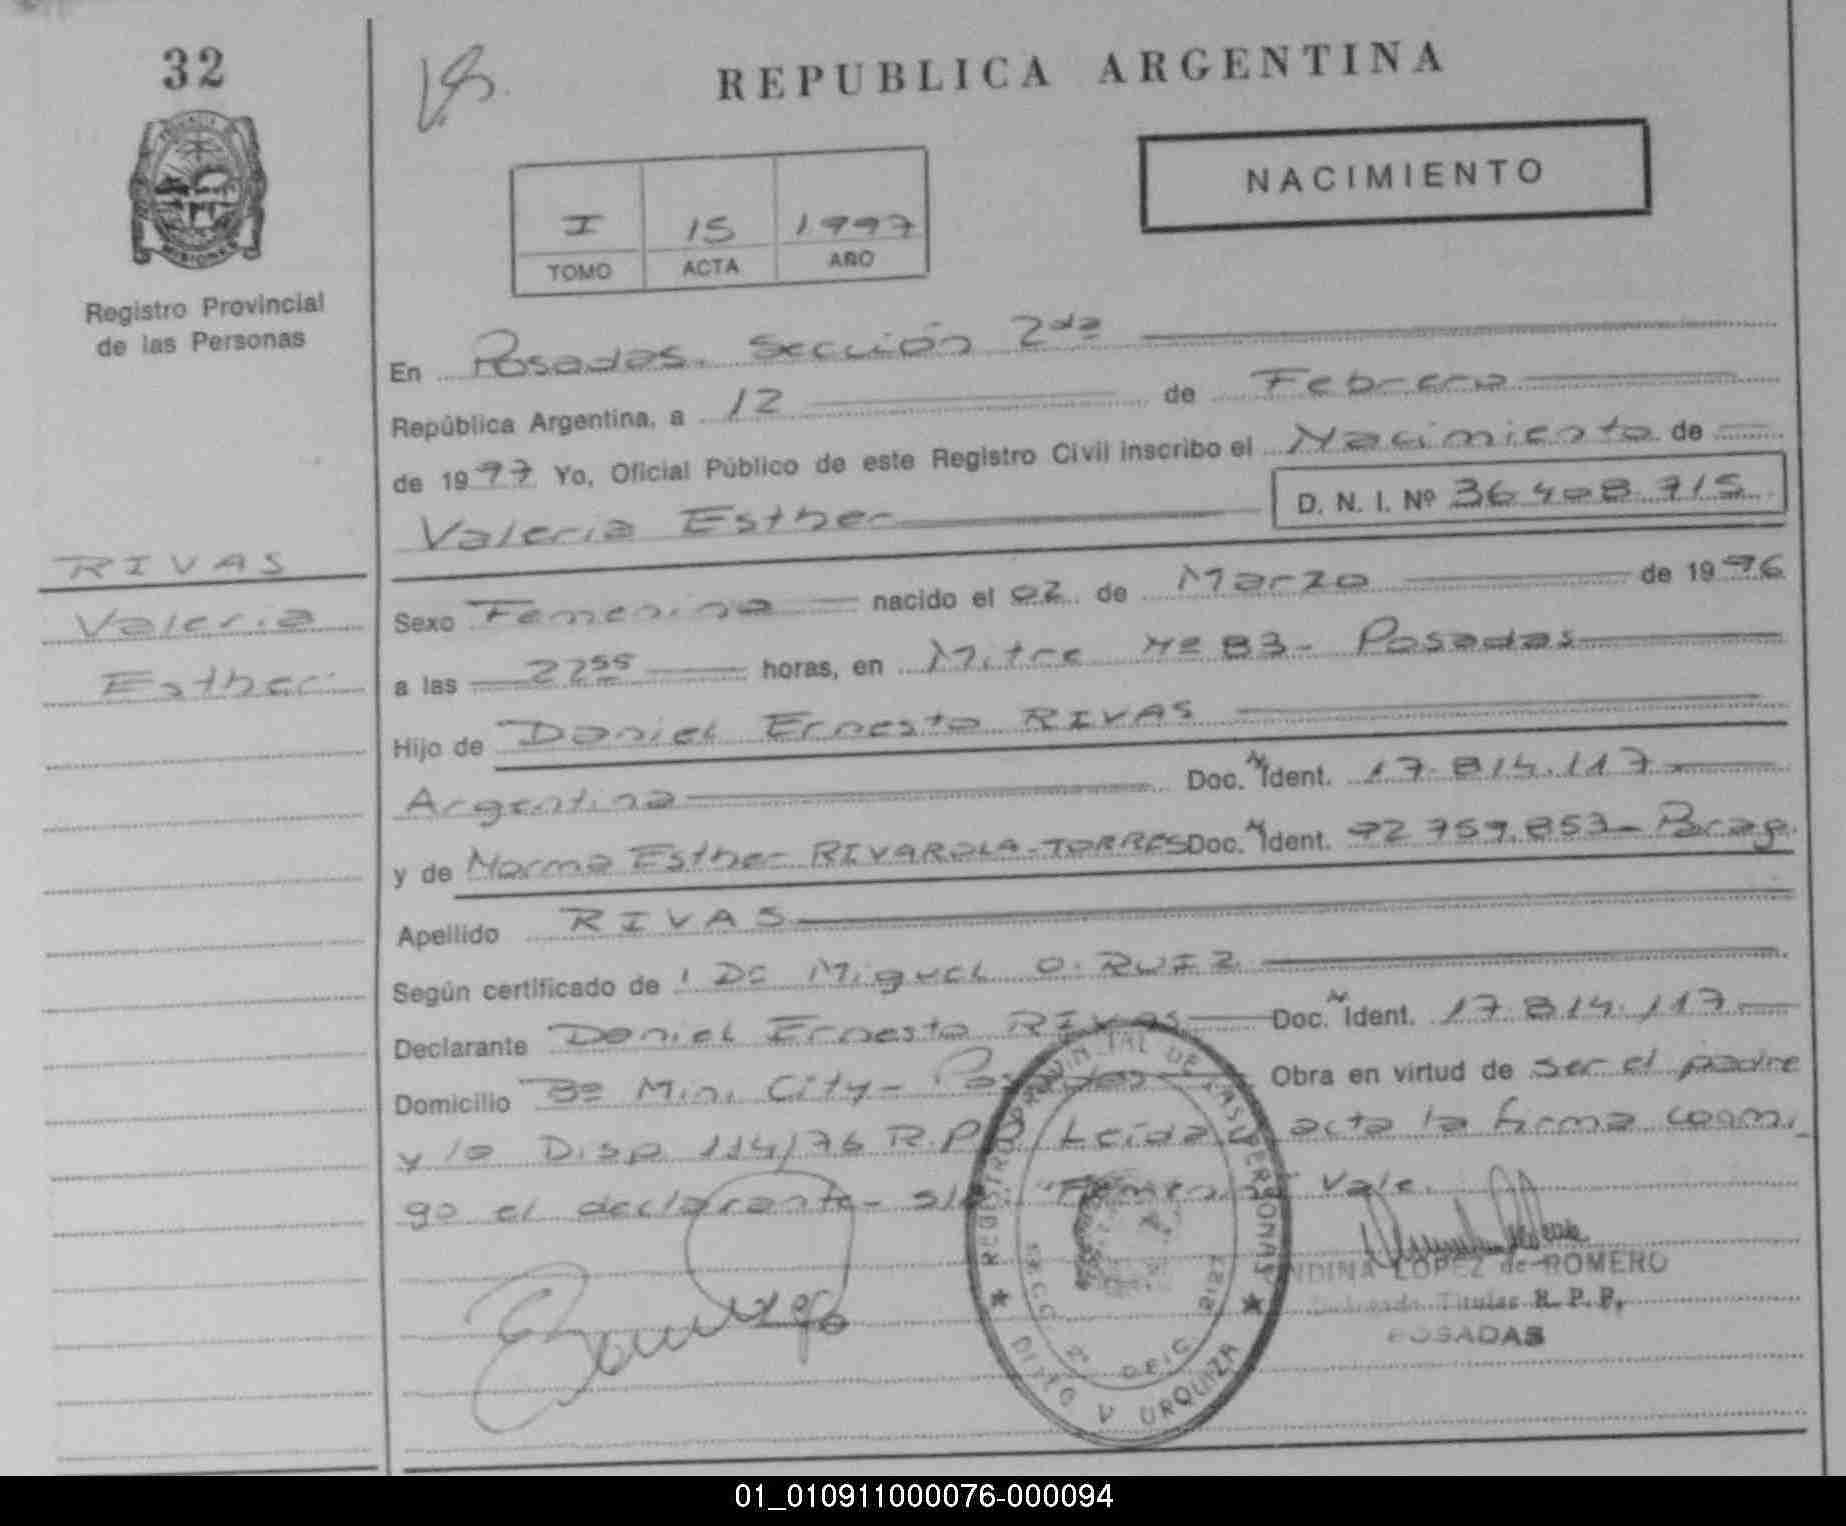 32
REPUBLICA ARGENTINA
NACIMIENTO
I 15 1997
TOMO ACTA AÑO
Registro Provincial
de las Personas
En Posadas. Sección 2da
República Argentina, a 12 de Febrero
de 1997 Yo, Oficial Público de este Registro Civil inscribo el Nacimiento de
Valeria Esther D. N. I. Nº 36.408.715
RIVAS
Valeria
Esther
Sexo Femenino nacido el 02 de Marzo de 1996
a las 22 55 horas, en Mitre Nº 83- Posadas
Hijo de Daniel Ernesto RIVAS
Argentina Doc. N Ident. 17.814.117
y de Norma Esther RIVAROLA-TORRES Doc. N Ident. 92.759.853- Parag.
Apellido RIVAS
Según certificado de Dr Miguel O. RUIZ
Declarante Daniel Ernesto RIVAS Doc. N Ident. 17.814.117
Domicilio Bº Mini City- Posadas Obra en virtud de ser el padre
y la Disp 114/76 R.P.P. Leída acta la firma conmi-
go el declarante- Vale.
REGISTRO PROVINCIAL DE LAS PERSONAS
SECC 2ª OFIC
DPTO V URQUIZA
ONDINA LOPEZ de ROMERO
Delegada Titular R. P. P.
POSADAS
01_010911000076-000094